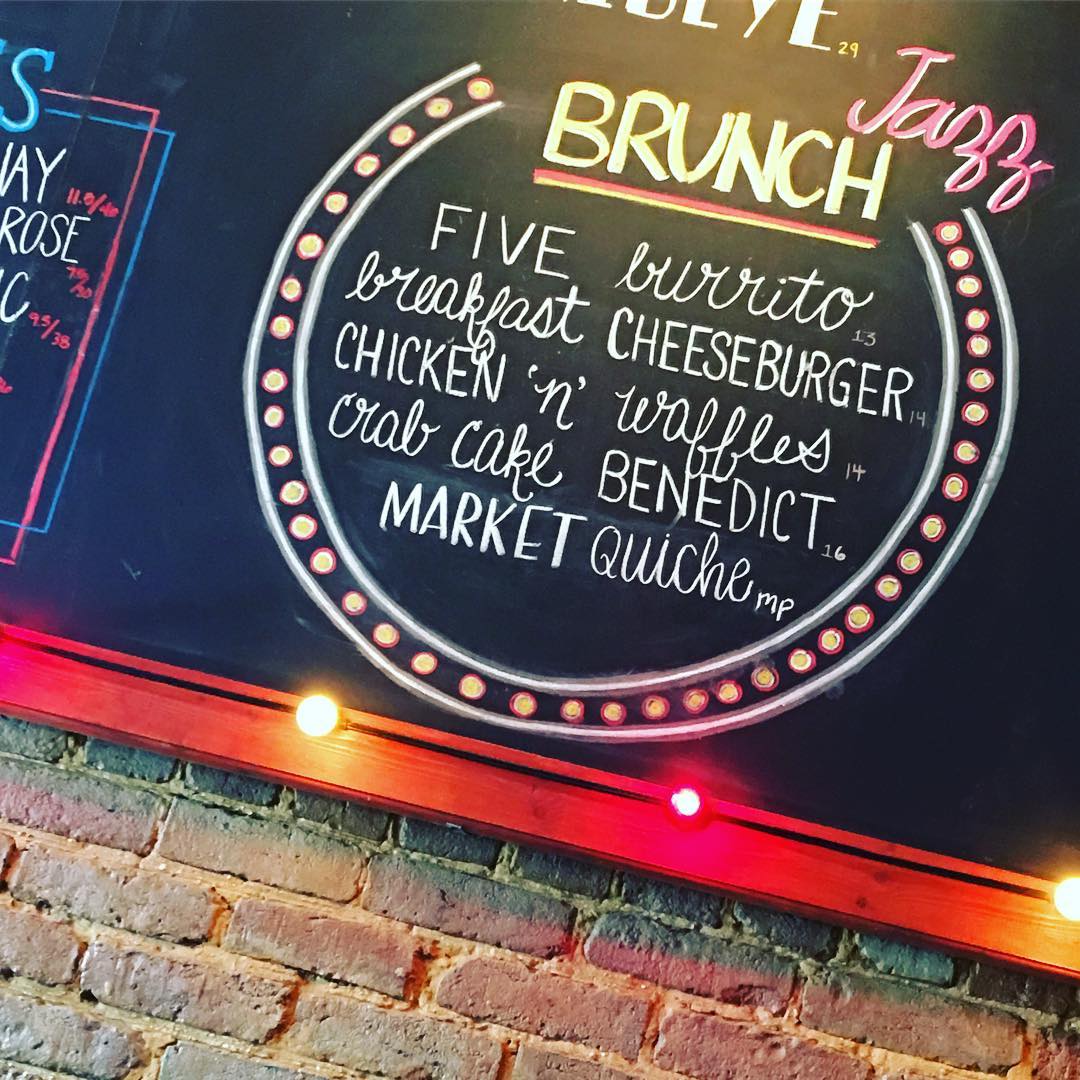 S
11.0/40
ROSE
7.5/30
9.5/38
29
Jazz
BRUNCH
FIVE burrito 13
breakfast CHEESEBURGER 14
CHICKEN 'n' waffles 14
crab cake BENEDICT 16
MARKET Quiche mp